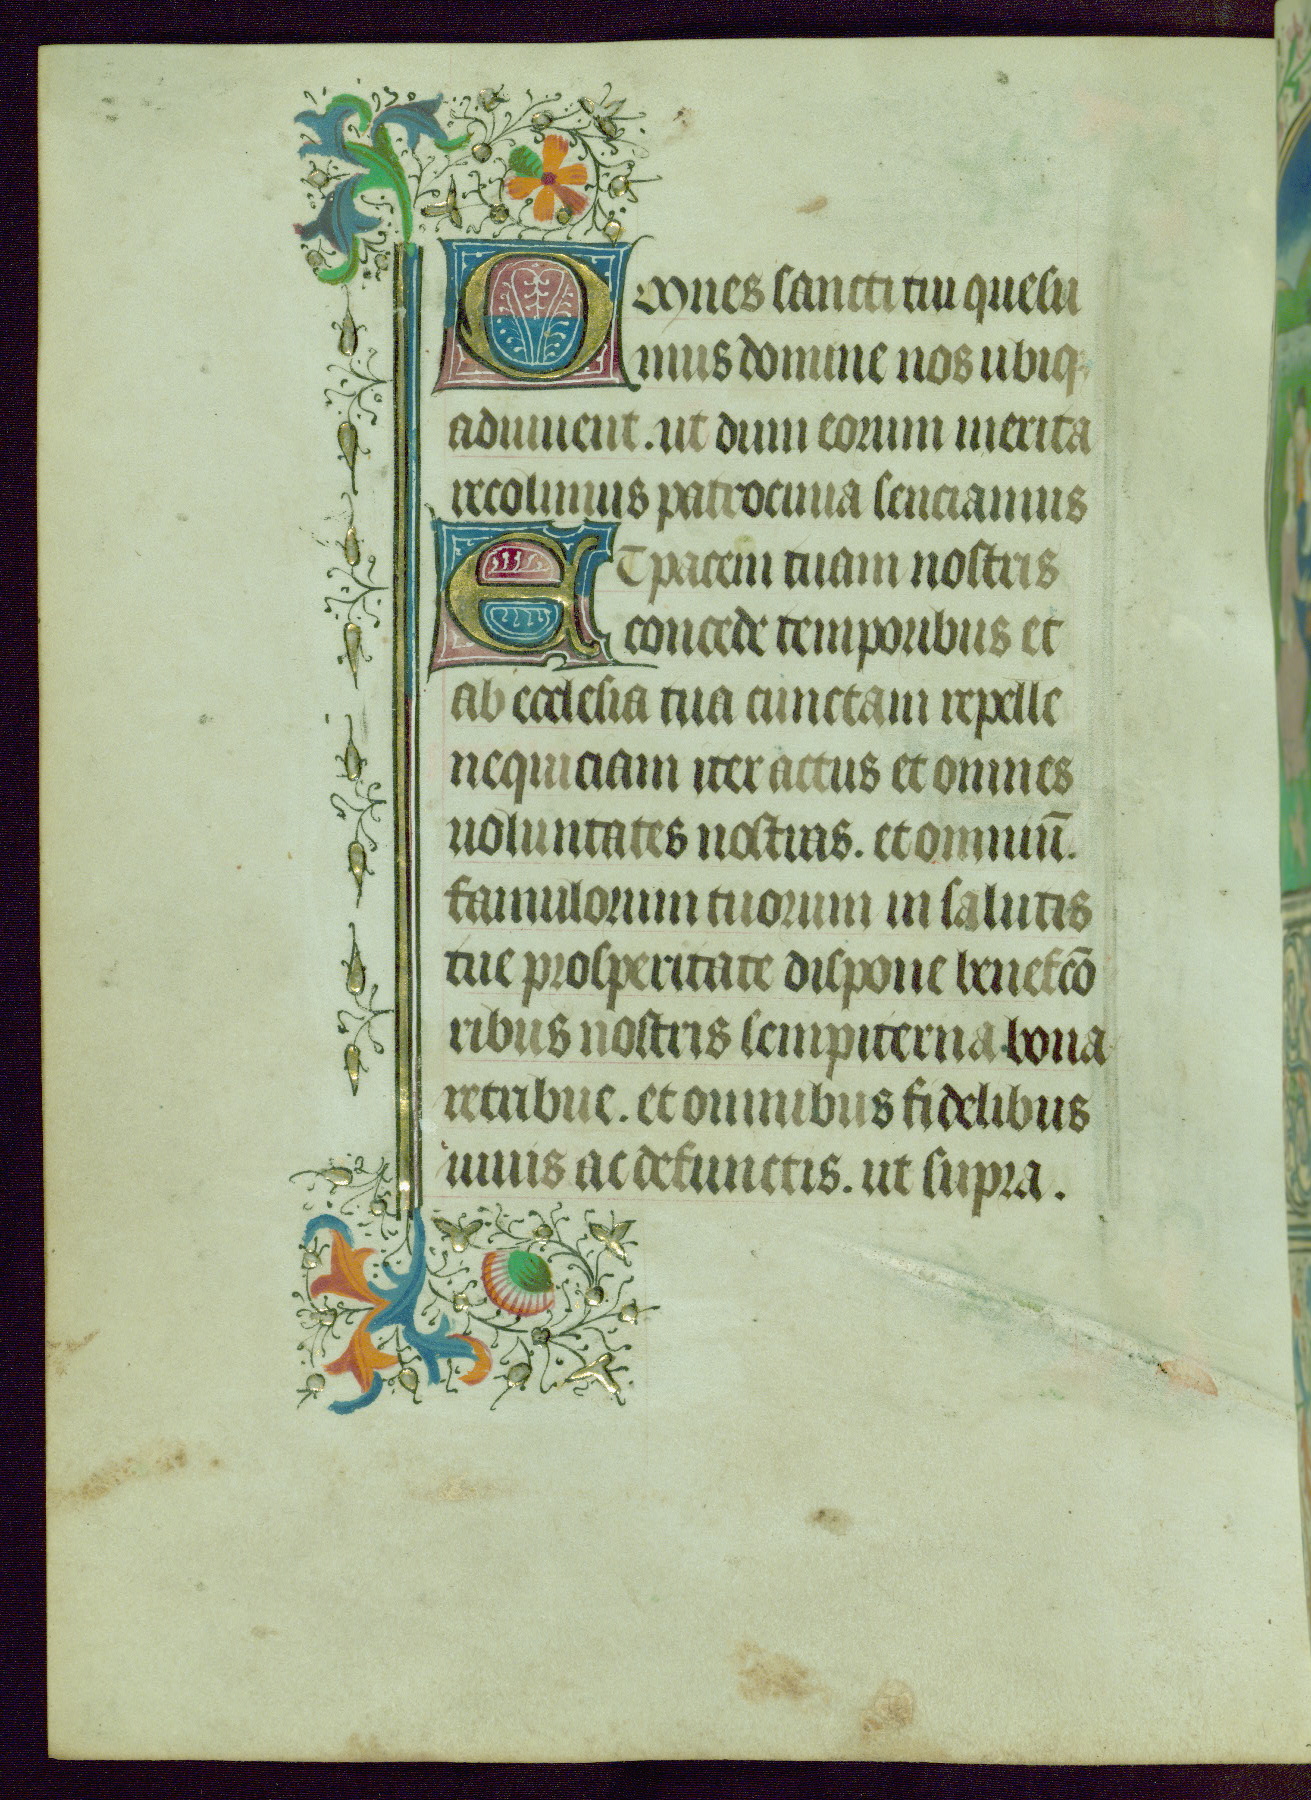 Omnes sancti tui quesu
mus domine nos ubiq;
adiuuent. ut dum eorum merita
recolimus patrocinia senciamus
ET pacem tuam nostris
concede temporibus et
ab ecclesia tua cunctam repelle
nequiciam iter actus et omnes
uoluntates nostras. et omniū.
famulorum tuorum in salutis
tue prosperitate dispone benefcō
ribus nostris sempiterna bona
retribue. et omnibus fidelibus
uiuis ac defunctis. ut supra.